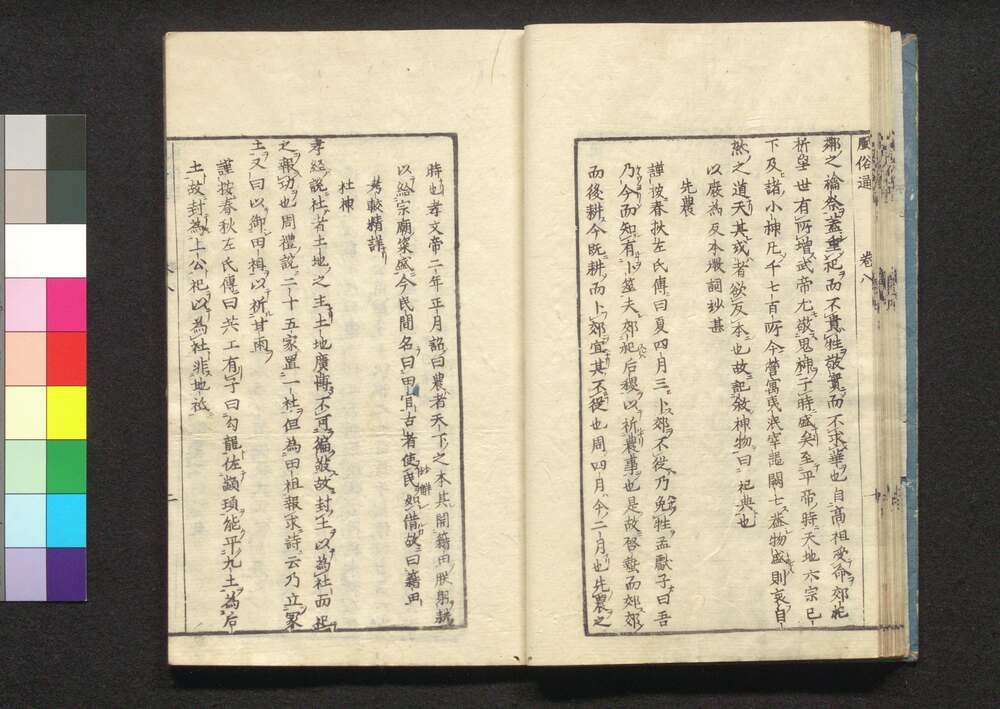 風俗通 卷八
鄰之禴祭蓋重祀而不貴牲敬實而不求華也自高祖受命郊祀
祈望世有所增武帝尤敬鬼神于時盛矣至平帝時天地六宗已
下及諸小神凡千七百所今營寓夷泯宰器闕亡蓋物盛則衰自
然之道天其或者欲反本也故記敘神物曰祀典也
以廢為反本激詞妙甚
先農
謹按春秋左氏傳曰夏四月三卜郊不從乃免牲孟獻子曰吾
乃今而知有卜筮夫郊祀后稷以祈農事也是故啓蟄而郊郊
而後耕今既耕而卜郊宜其不從也周四月今二月也先農之
時也孝文帝二年正月詔曰農者天下之本其開籍田朕躬耕
以給宗廟粢盛今民間名曰田官古者使民如借故曰籍田
考較精詳
社神
孝經說社者土地之主土地廣博不可徧敬故封土以為社而祀
之報功也周禮說二十五家置一社但為田祖報求詩云乃立冢
土又曰以御田祖以祈甘雨
謹按春秋左氏傳曰共工有子曰勾龍佐顓頊能平九土為后
土故封為上公祀以為社非地祇